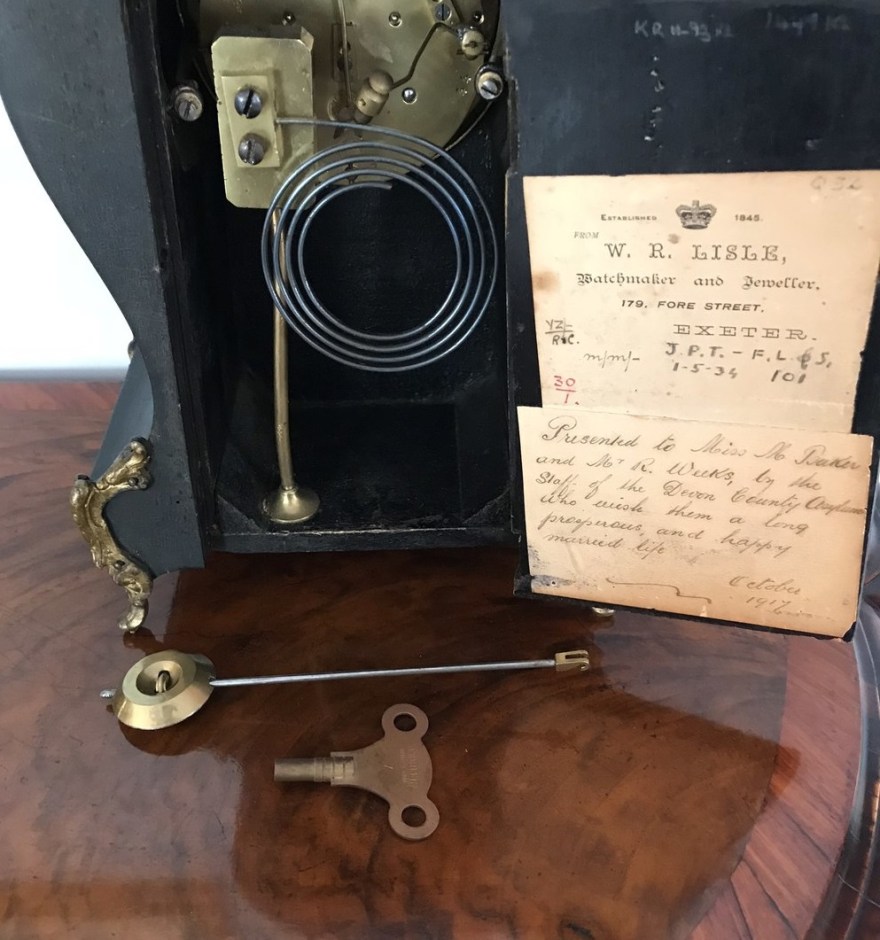 KR 11-93
ESTABLISHED 1845.
FROM
W. R. LISLE,
Watchmaker and Jeweller,
179, FORE STREET,
EXETER.
R&C.
m/m/-
J.P.T. - F.L & S,
1-5-34 101
30/1.
Presented to Miss M Baker
and Mr R. Weeks, by the
Staff of the Devon County Asylum
who wish them a long
prosperous, and happy
married life
October
1917